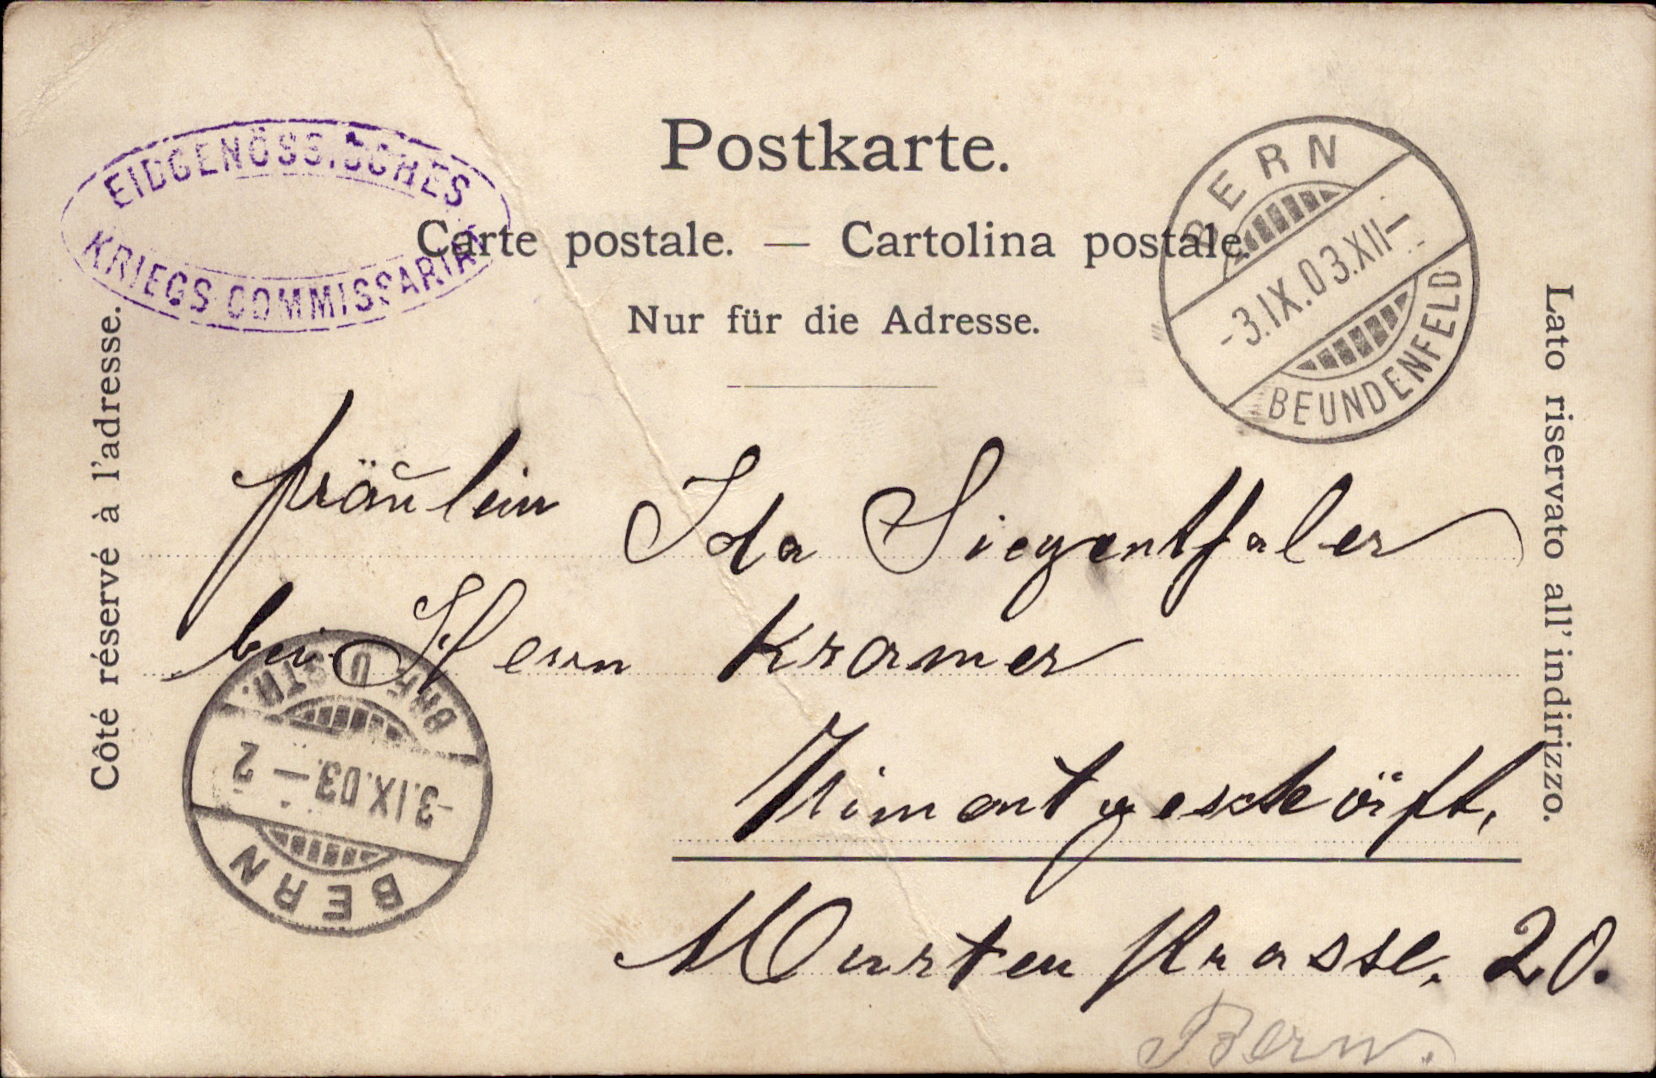 EIDGENÖSSISCHES
KRIEGS-COMMISSARIAT
Postkarte.
Carte postale. — Cartolina postale.
Nur für die Adresse.
BERN
-3.IX.03.XII-
BEUNDENFELD
Côté réservé à l'adresse.
Lato riservato all' indirizzo.
Fräulein Ida Siegenthaler
bei Herrn Kramer
Murtenstrasse. 20.
Bern.
BERN
-3.IX.03.-2